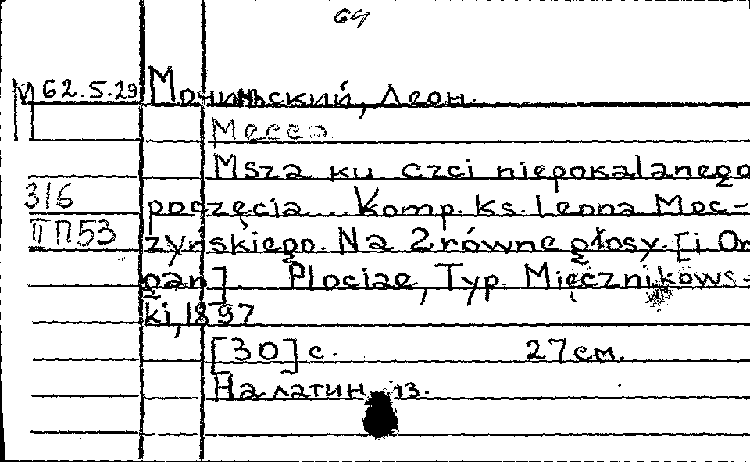 64
М 62.5.29 Мочиньский, Леон.
Месса
Msza ku czci niepokalanego
316 poczęcia... Komp. ks. Leona Moc-
ПП53 zyńskiego. Na 2 równe głosy. [i Or
gan]. Plociae, Typ. Mięcznikows-
ki, 1897
[30] с. 27 см.
На латин. яз.